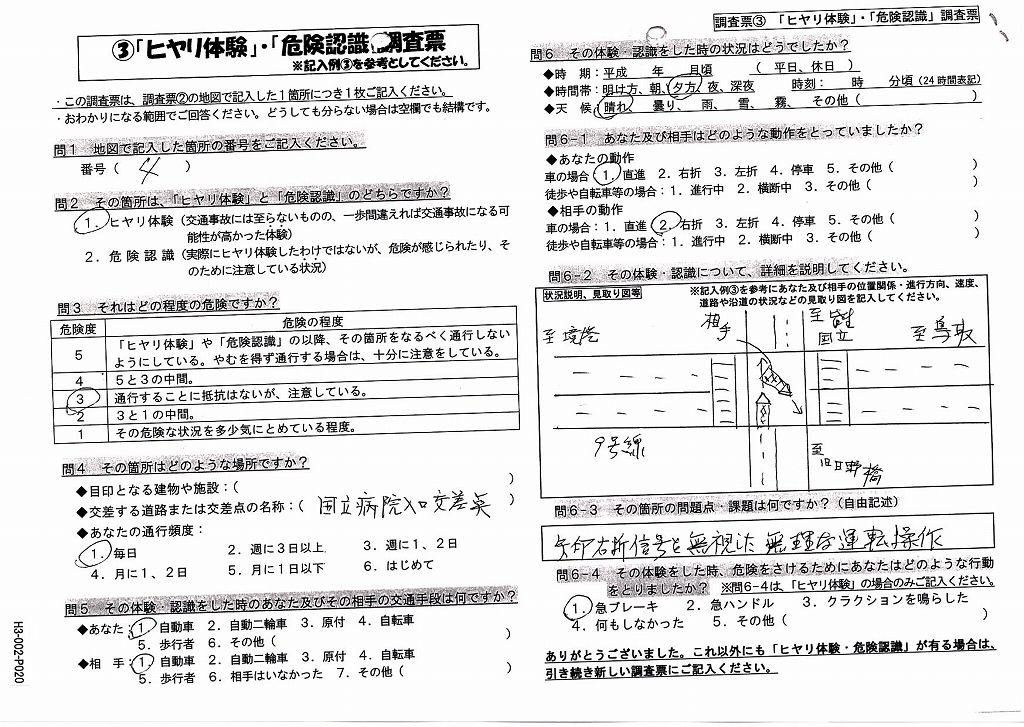 調査票③ 「ヒヤリ体験」・「危険認識」調査票
③「ヒヤリ体験」・「危険認識」調査票
※記入例③を参考としてください。
・この調査票は、調査票②の地図で記入した1箇所につき1枚ご記入ください。
・おわかりになる範囲でご回答ください。どうしても分らない場合は空欄でも結構です。
問1 地図で記入した箇所の番号をご記入ください。
番号( 4 )
問2 その箇所は、「ヒヤリ体験」と「危険認識」のどちらですか?
1.ヒヤリ体験(交通事故には至らないものの、一歩間違えれば交通事故になる可
能性が高かった体験)
2.危険認識(実際にヒヤリ体験したわけではないが、危険が感じられたり、そ
のために注意している状況)
問3 それはどの程度の危険ですか?
危険度 危険の程度
5 「ヒヤリ体験」や「危険認識」の以降、その箇所をなるべく通行しない
ようにしている。やむを得ず通行する場合は、十分に注意をしている。
4 5と3の中間。
3 通行することに抵抗はないが、注意している。
2 3と1の中間。
1 その危険な状況を多少気にとめている程度。
問4 その箇所はどのような場所ですか?
◆目印となる建物や施設:( )
◆交差する道路または交差点の名称:( 国立病院入口交差点 )
◆あなたの通行頻度:
1.毎日 2.週に3日以上 3.週に1、2日
4.月に1、2日 5.月に1日以下 6.はじめて
問5 その体験・認識をした時のあなた及びその相手の交通手段は何ですか?
◆あなた:1.自動車 2.自動二輪車 3.原付 4.自転車
5.歩行者 6.その他( )
◆相 手:1.自動車 2.自動二輪車 3.原付 4.自転車
5.歩行者 6.相手はいなかった 7.その他( )
H3-002-P020
問6 その体験・認識をした時の状況はどうでしたか?
◆時 期:平成 年 月頃 ( 平日、休日 )
◆時間帯:明け方、朝、夕方、夜、深夜 時刻: 時 分頃(24時間表記)
◆天 候:晴れ、 曇り、 雨、 雪、 霧、 その他( )
問6-1 あなた及び相手はどのような動作をとっていましたか?
◆あなたの動作
車の場合:1.直進 2.右折 3.左折 4.停車 5.その他( )
徒歩や自転車等の場合:1.進行中 2.横断中 3.その他( )
◆相手の動作
車の場合:1.直進 2.右折 3.左折 4.停車 5.その他( )
徒歩や自転車等の場合:1.進行中 2.横断中 3.その他( )
問6-2 その体験・認識について、詳細を説明してください。
状況説明、見取り図等 ※記入例③を参考にあなた及び相手の位置関係・進行方向、速度、
道路や沿道の状況などの見取り図を記入してください。
至境港
相手
至皆生
国立
至鳥取
9号線
至旧日野橋
問6-3 その箇所の問題点・課題は何ですか?(自由記述)
矢印右折信号を無視した無理な運転操作
問6-4 その体験をした時、危険をさけるためにあなたはどのような行動
をとりましたか? ※問6-4は、「ヒヤリ体験」の場合のみご記入ください。
1.急ブレーキ 2.急ハンドル 3.クラクションを鳴らした
4.何もしなかった 5.その他( )
ありがとうございました。これ以外にも「ヒヤリ体験・危険認識」が有る場合は、
引き続き新しい調査票にご記入ください。